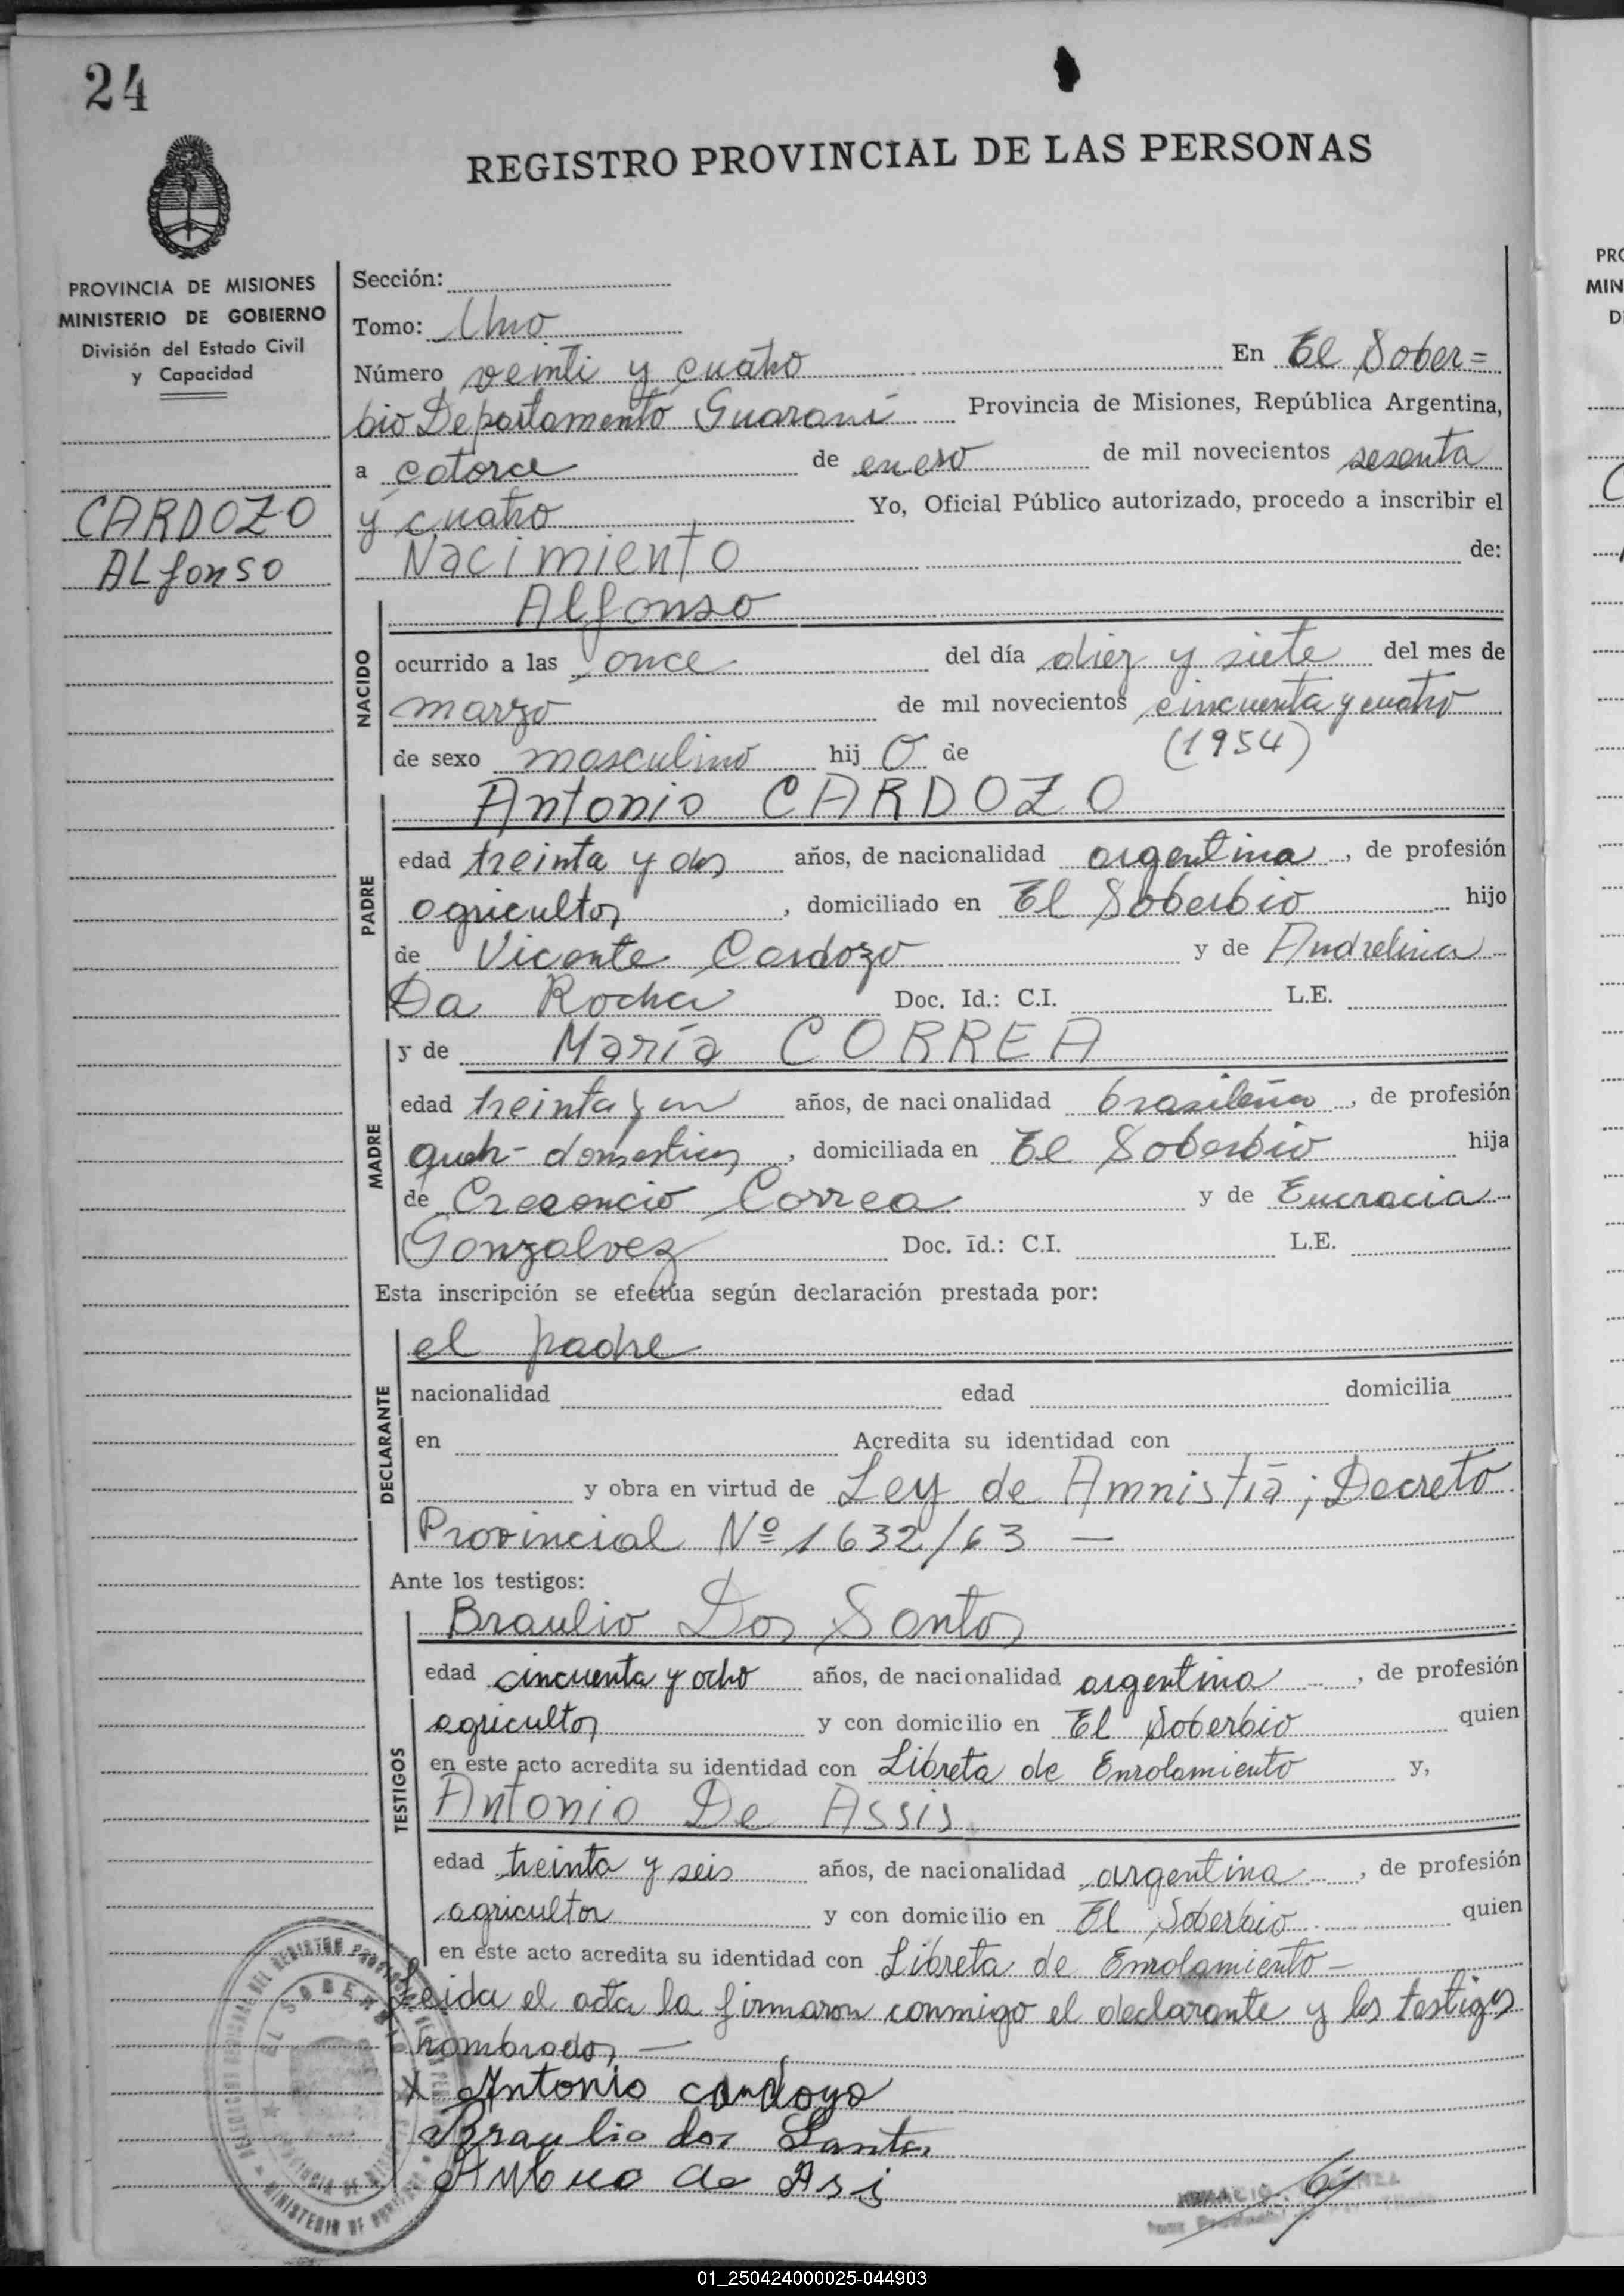 24
REGISTRO PROVINCIAL DE LAS PERSONAS
PROVINCIA DE MISIONES
MINISTERIO DE GOBIERNO
División del Estado Civil
y Capacidad
CARDOZO
ALfonso
Sección:
Tomo: Uno
Número veinti y cuatro En El Sober=
bio Departamento Guaraní Provincia de Misiones, República Argentina,
a catorce de enero de mil novecientos sesenta
y cuatro Yo, Oficial Público autorizado, procedo a inscribir el
Nacimiento de:
NACIDO
Alfonso
ocurrido a las once del día diez y siete del mes de
marzo de mil novecientos cincuenta y cuatro
de sexo masculino hij O de (1954)
PADRE
Antonio CARDOZO
edad treinta y dos años, de nacionalidad argentina, de profesión
agricultor, domiciliado en El Soberbio hijo
de Vicente Cardozo y de Andrelina
Da Rocha Doc. Id.: C.I. L.E.
MADRE
y de María CORREA
edad treinta y un años, de nacionalidad brasileña, de profesión
domesticos, domiciliada en El Soberbio hija
de Cresencio Correa y de Eucracia
Gonzalvez Doc. Id.: C.I. L.E.
Esta inscripción se efectúa según declaración prestada por:
DECLARANTE
el padre
nacionalidad edad domicilia
en Acredita su identidad con
y obra en virtud de Ley de Amnistía; Decreto
Provincial Nº 1632/63 —
Ante los testigos:
TESTIGOS
Braulio Dos Santos
edad cincuenta y ocho años, de nacionalidad argentina, de profesión
agricultor y con domicilio en El Soberbio quien
en este acto acredita su identidad con Libreta de Enrolamiento y,
Antonio De Assis
edad treinta y seis años, de nacionalidad argentina, de profesión
agricultor y con domicilio en El Soberbio quien
en este acto acredita su identidad con Libreta de Enrolamiento —
Leida el acta la firmaron conmigo el declarante y los testigos
nombrados —
X Antonio cardozo
Braulio dos Santos
Antonio de Asi
EL SOBERBIO
MINISTERIO DE
PRO
MIN
D
01_250424000025-044903